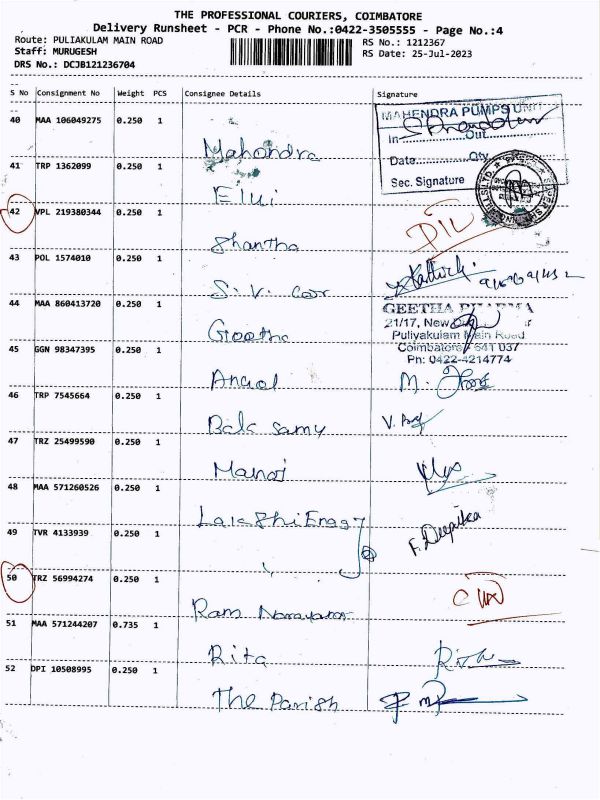 THE PROFESSIONAL COURIERS, COIMBATORE
Delivery Runsheet - PCR - Phone No.:0422-3505555 - Page No.:4
Route: PULIAKULAM MAIN ROAD RS No.: 1212367
Staff: MURUGESH RS Date: 25-Jul-2023
DRS No.: DCJB121236704
S No Consignment No Weight PCS Consignee Details Signature
40 MAA 106049275 0.250 1
Mahendra
MAHENDRA PUMPS UNIT
In Out
Date Qty
Sec. Signature
41 TRP 1362099 0.250 1
42 VPL 219380344 0.250 1
Shantha
43 POL 1574010 0.250 1
S.V. Car Karthick.
44 MAA 860413720 0.250 1
Geetha
GEETHA PHARMA
21/17, New
Puliyakulam Main Road
Coimbatore - 641 037
Ph: 0422-4214774
45 GGN 98347395 0.250 1
M.
46 TRP 7545664 0.250 1
Bala samy V.
47 TRZ 25499590 0.250 1
Manoj
48 MAA 571260526 0.250 1
F. Deepika
49 TVR 4133939 0.250 1
50 TRZ 56994274 0.250 1
Ram Narayanan
51 MAA 571244207 0.735 1
Rita
52 DPI 10508995 0.250 1
The Parish